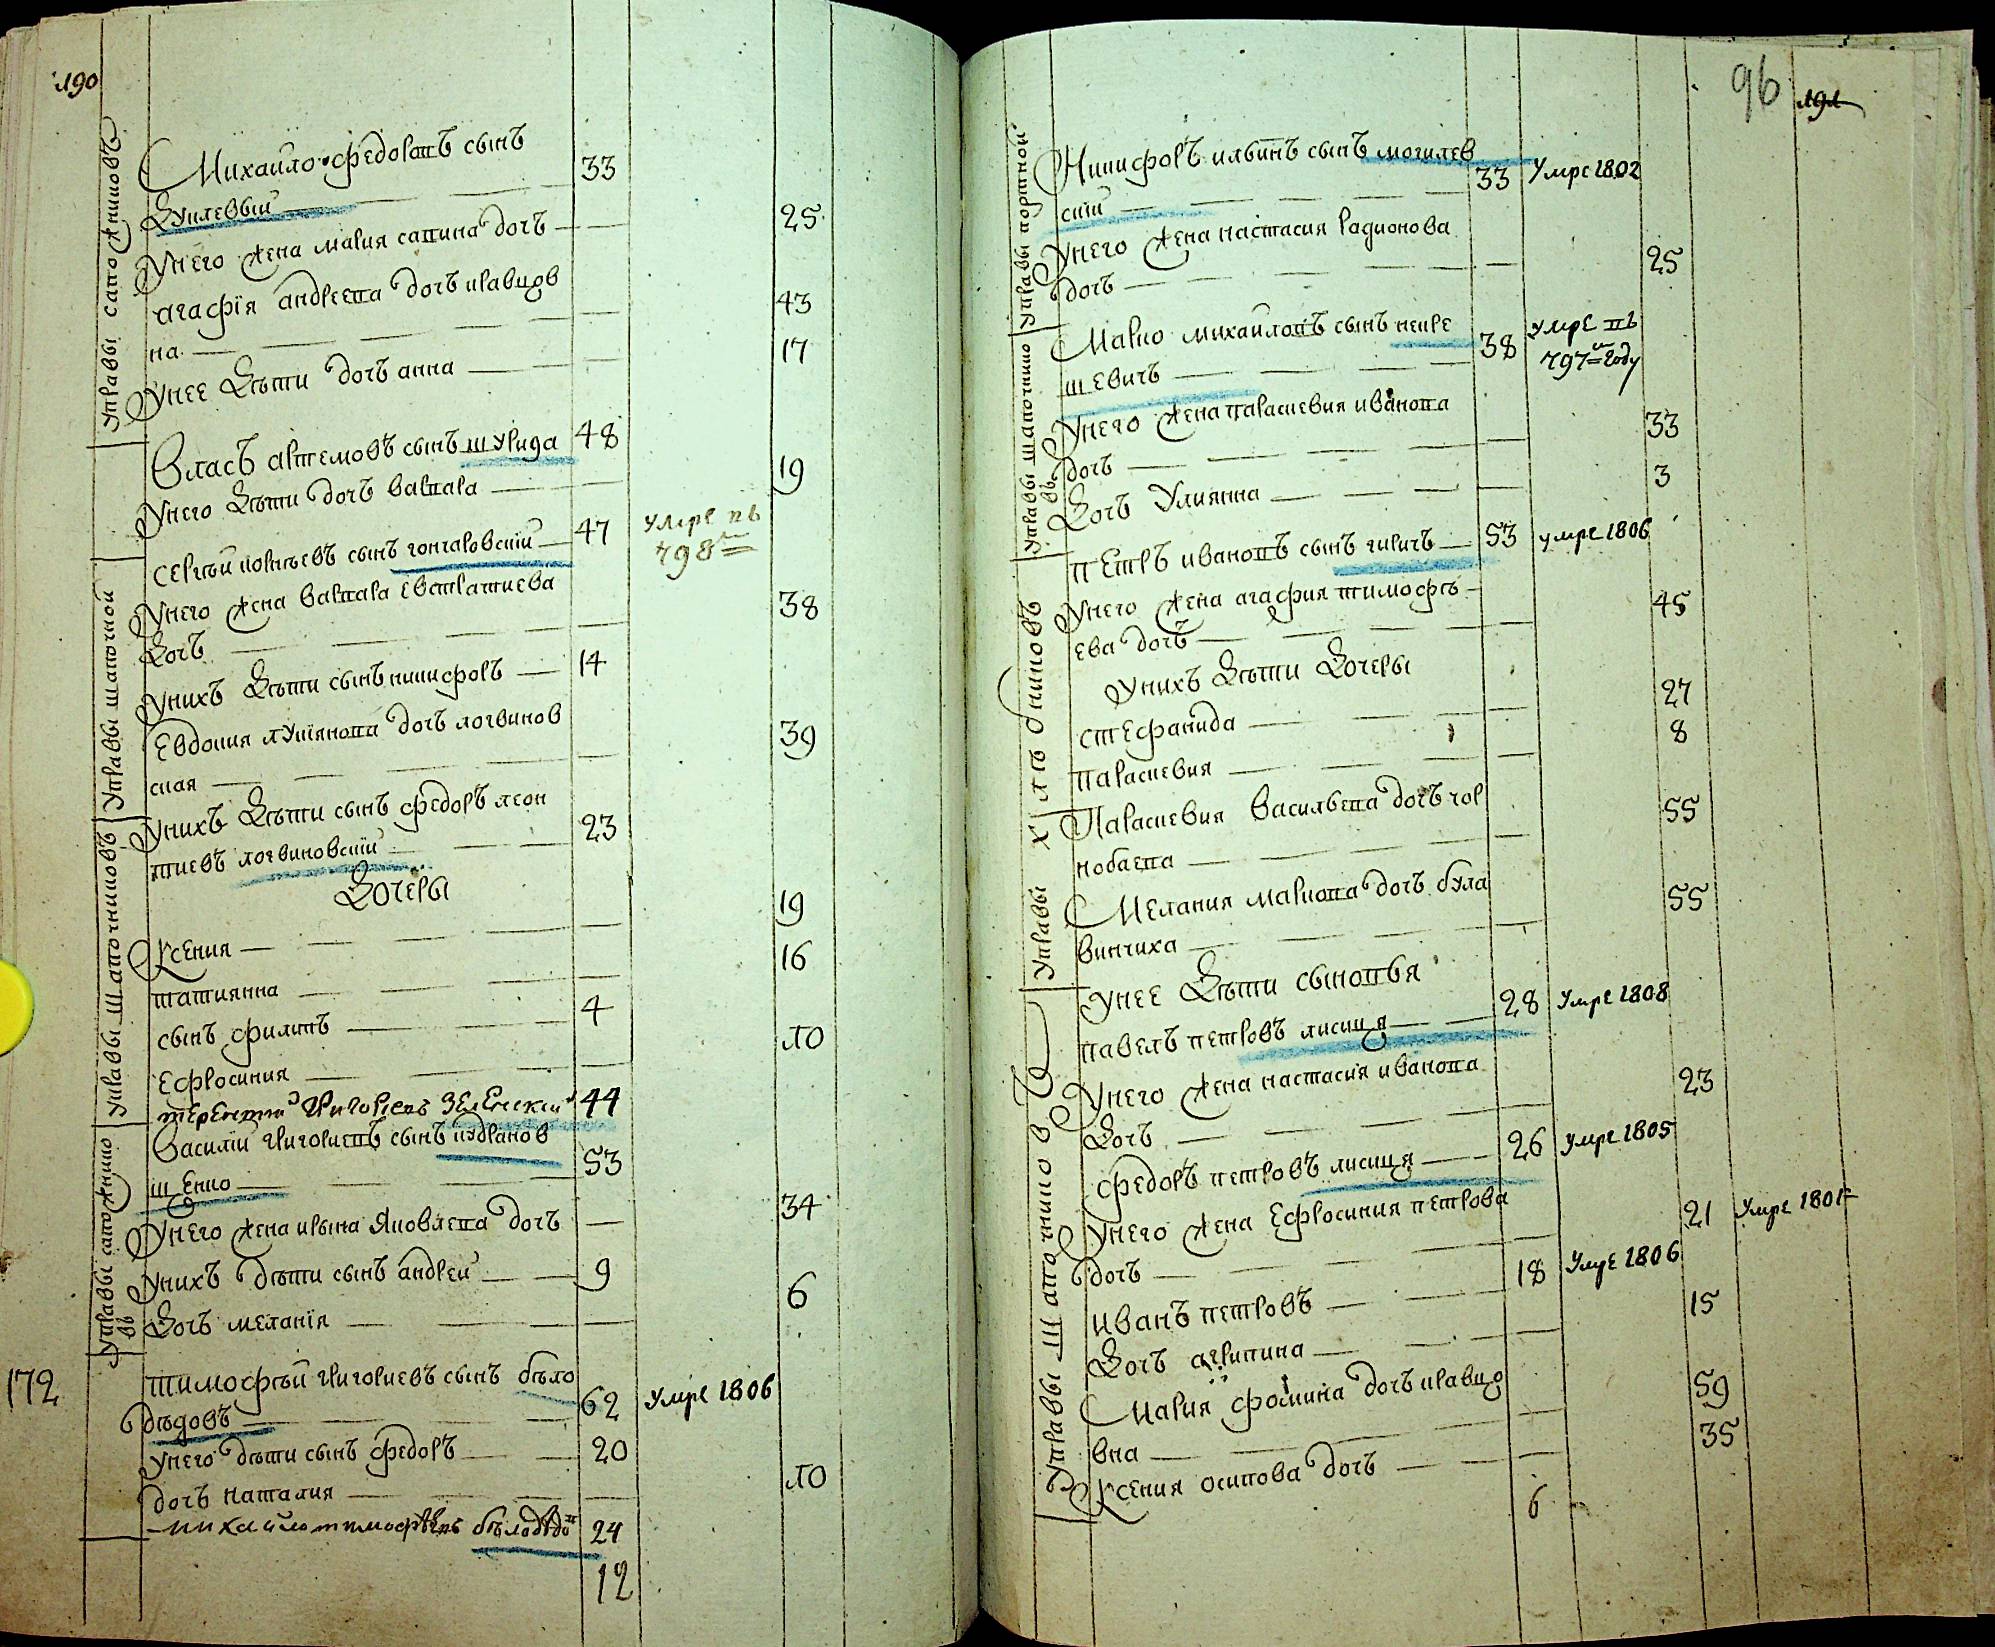 190
управы сапожниковъ
Михайло федоровъ сынъ 33
Унего жена мария савина дочь 25
агафїя андреева дочь кравцов
на 43
Унее дѣти дочь анна 17
Власъ артемовъ сынъ шкурида 48
Унего дѣти дочь варвара 19
управы шапочной
Сергѣй сынъ гончаровскїй 47 умре въ 798
Унего жена варвара евстратиева
дочь 38
Унихъ дѣти сынъ никифоръ 14
управы шапочниковъ
Евдокия лукїянова дочь логвинов
ская 39
Унихъ дѣти сынъ федоръ леон
тиевъ логвиновскїй 23
дочеры
Ксения 19
татиянна 16
сынъ филипъ 4
Ефросиния 10
терентий григориевъ зеленский 44
управы сапожнико
въ
Василїй григориевъ сынъ кудранов
щенко 53
Унего жена ирына яковлева дочь 34
Унихъ дѣти сынъ андрей 9
дочь меланїя 6
172
тимофѣй григориевъ сынъ бѣло
дѣдовъ 62 умре 1806
унего дѣти сынъ федоръ 20
дочь наталия 10
михайло тимофѣевъ бѣлодѣдо 24
12
96 191
управы портной
Никифоръ ильинъ сынъ могилев
скїй 33 Умре 1802
Унего жена настасия радионова
дочь 25
управы шапочнико
въ
Марко михайловъ сынъ некре
шевичъ 38 умре въ
797 году
Унего жена параскевия иванова
дочь 33
дочь Улиянна 3
управы хлѣбниковъ
петръ ивановъ сынъ киричъ 53 умре 1806
Унего жена агафия тимофѣ-
ева дочь 45
Унихъ дѣти дочеры
стефанида 27
параскевия 8
Параскевия васильева дочь чор
нобаева 55
Мелания маркова дочь була
винчиха 55
управы шапочниковъ
Унее дѣти сыновья
павелъ петровъ лисиця 28 Умре 1808
Унего жена настасия иванова
дочь 23
федоръ петровъ лисиця 26 умре 1805
Унего жена Ефросиния петрова
дочь 21 Умре 1801
иванъ петровъ 18 Умре 1806
дочь агрипина 15
Мария фомина дочь кравцо
вна 59
Ксения осипова дочь 35
6